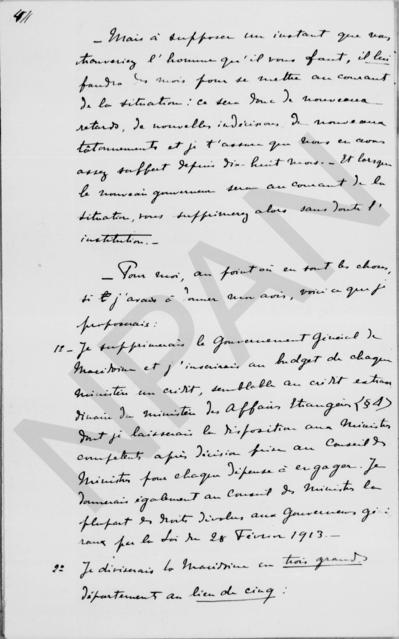 4
— Mais à supposer un instant que vous
trouveriez l'homme qu'il vous faut, il lui
faudra des mois pour se mettre au courant
de la situation : ce sera donc de nouveaux
retards, de nouvelles indécisions, de nouveaux
tâtonnements et je t'assure que nous en avons
assez souffert depuis dix-huit mois. — Et lorsque
le nouveau gouverneur sera au courant de la
situation, vous supprimerez alors sans doute l'
institution. —
— Pour moi, au point où en sont les choses,
si j'avais à donner mon avis, voici ce que je
proposerais :
1º — Je supprimerais le Gouvernement Général de
Macédoine et j'inscrirais au budget de chaque
ministère un crédit, semblable au crédit extraor
dinaire du ministère des Affaires Etrangères (§4)
dont je laisserais la disposition aux Ministres
compétents après décision prise au Conseil des
Ministres pour chaque dépense à engager. Je
donnerais également au Conseil des Ministres la
plupart des droits dévolus aux Gouverneurs gé-
raux par la Loi du 28 Février 1913. —
2º — Je diviserais la Macédoine en trois grands
départements au lieu de cinq :
NPAN